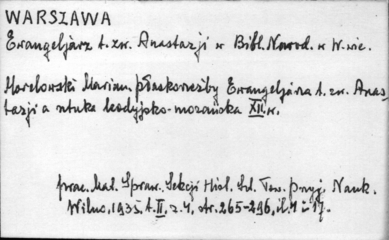 WARSZAWA
Ewangeljarz t. zw. Anastazji w Bibl. Narod. w W-wie.
Morelowski Marian płaskorzeźby Ewangeljarza t. zw. Anas
tazji a sztuka leodyjsko-mozańska XII w.
prac. Mat. Spraw. Sekcji Hist. Szt. Tow. Przyj. Nauk.
Wilno, 1935. t. II, z. 4, str. 265-296, il. 1 i 17.